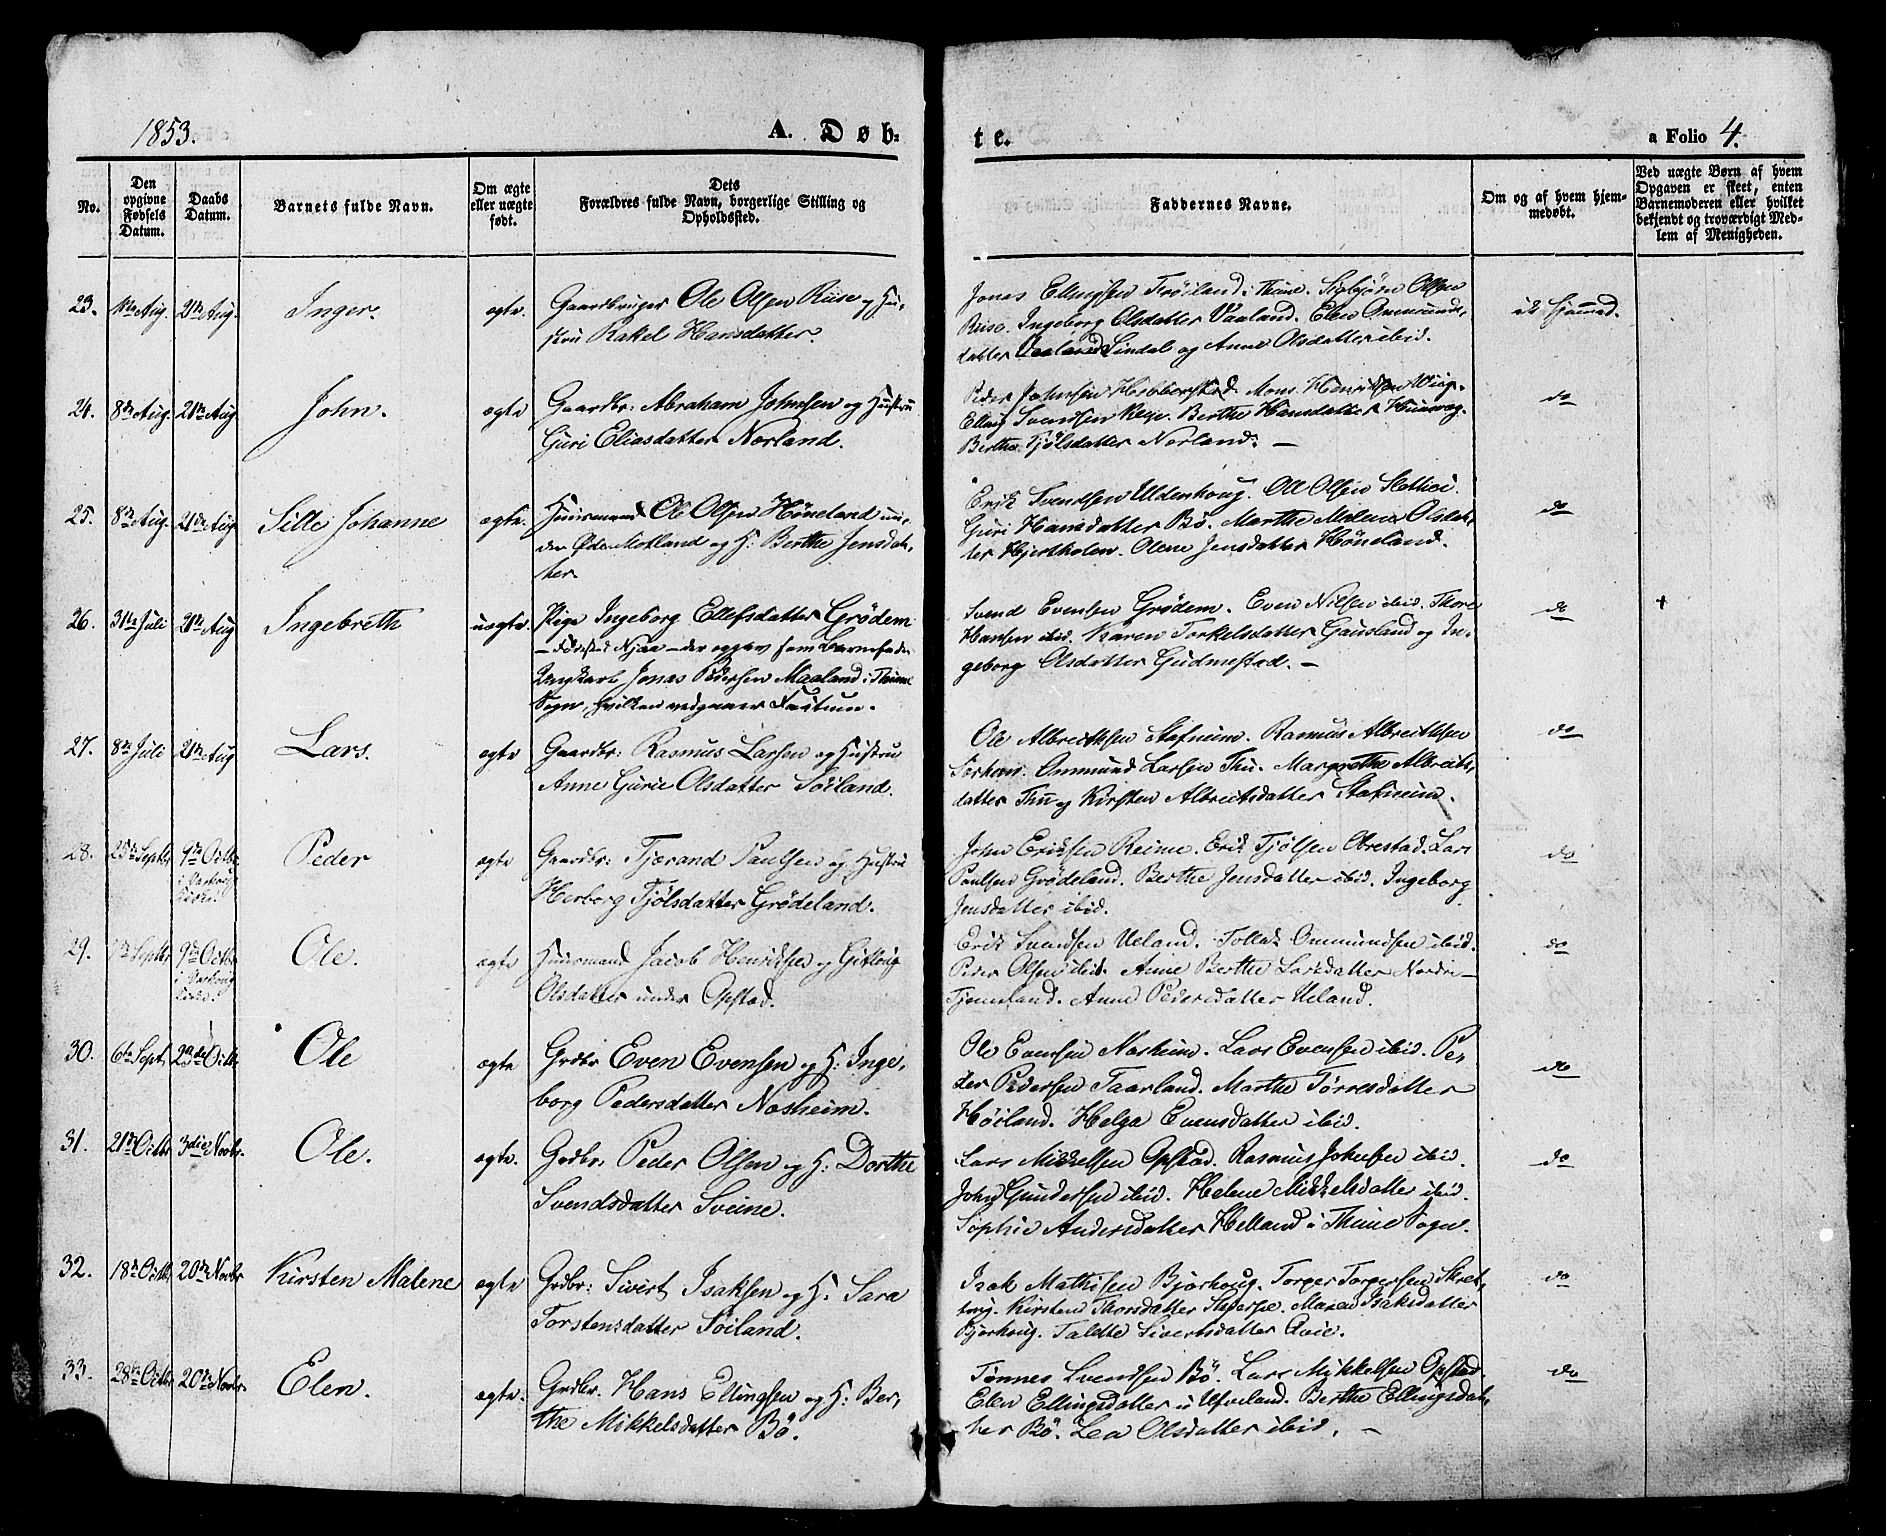 1853.
A. Døb-
te.
a Folio 4.
No.
Den opgivne Fødsels Datum.
Daabs Datum.
Barnets fulde Navn.
Om ægte eller uægte født.
Dets Forældres fulde Navn, borgerlige Stilling og Opholdssted.
Faddernes Navne.
Om og af hvem hjemmedøbt.
Ved uægte Børn af hvem Opgaven er skeet, enten Barnemoderen eller hvilket bekjendt og troværdigt Medlem af Menigheden.
23. Aug. 21de Aug. Inger. ægte
Gaardbruger Ole Olsen Riise og Hu-
stru Rakel Hansdatter.
Jonas Ellingsen Frøiland i Thime. Olsen
Riise. Ingeborg Olsdatter Vaaland. Elen Ommunds-
datter Lindal og Anne Olsdatter ibid.
ei hjemmed.
24. 8de Aug. 21de Aug John. ægte
Gaardbr: Abraham Johnsen og Hustru
Guri Eliasdatter Norland.
Peder Johnsen Hobberstad. Mons Henriksen Wiig.
Elling Svendsen Berthe Hansdatter
Berthe Tjølsdatter Norland. —
do
25. 8de Aug. 21de Aug Sille Johanne ægte.
Huusmand Ole Olsen Høneland un-
der og H: Berthe Jensdat-
ter.
Erik Svendsen Uldenhoug. Ole Olsen
Guri Hansdatter Bø. Marthe Malene Olsdat-
ter Hjertholen. Olene Jensdatter Høneland.
do
26. 31te Juli 21de Aug Ingebreth uægte.
Pige Ingeborg Ellefsdatter Grødem
— Njaa — der opgav som Barnefader
Ungkarl Jonas Pedersen Maaland i Thime
Sogn, hvilken vedgaaer Factum.
Svend Evensen Grødem. Even Nilsen ibid. Thore
Hansen ibid. Karen Torkelsdatter Gausland og In-
geborg Olsdatter Gudmestad. —
do
+
27. 8de Juli 21de Aug Lars. ægte
Gaardbr: Rasmus Larsen og Hustru
Anne Gurie Olsdatter Søiland.
Ole Albrethsen Stafneim. Rasmus Albrethsen
Ommund Larsen Thu. Margrethe Albreths-
datter Thu og Kirsten Albretsdatter Stafneim.
do
28. 25de Septbr 9de Octbr i Varhoug Kirke. Peder ægte
Gaardbr: Tjærand Paulsen og Hustru
Herborg Tjølsdatter Grødeland.
John Eriksen Reime. Erik Tjølsen Obrestad. Lars
Paulsen Grødeland. Berthe Jensdatter ibid. Ingeborg
Jensdatter ibid.
do
29. Septbr 9de Octbr i Varhoug Kirke. Ole. ægte
Huusmand Jacob Henriksen og Gitlaug
Olsdatter under Opstad.
Erik Svendsen Ueland. Tollak Ommundsen ibid.
Peder Olsen ibid. Anne Berthe Larsdatter Nordre-
Tjemeland. Anne Pedersdatter Ueland.
do
30. 6te Septb 23de Octbr Ole ægte
Grdbr Even Evensen og H: Inge-
borg Pedersdatter Nosheim.
Ole Evensen Nosheim. Lars Evensen ibid. Pe-
der Pedersen Taarland. Marthe Tørresdatter
Høiland. Helga Evensdatter ibid.
do
31. 21de Octbr 3die Novbr. Ole. ægte.
Grdbr. Peder Olsen og H: Dorthe
Svendsdatter Sveine.
Lars Mikkelsen Opstad. Rasmus Johnsen ibid.
John Gundersen ibid. Helene Mikkelsdatter ibid.
Sophie Andersdatter Helland i Thime Sogn.
do
32. 18de Octbr 20de Novbr Kirsten Malene ægte
Grdbr: Sivert Isaksen og H: Sara
Torstensdatter Søiland.
Isak Mathisen Bjorhoug. Torger Torgersen Skret-
ting. Kirsten Thorsdatter Maren Isaksdatter
Bjorhoug. Taldte Sivertsdatter Qvie.
do
33. 28de Octbr 20de Novbr. Elen. ægte.
Grdbr. Hans Ellingsen og H: Ber-
the Mikkelsdatter Bø.
Tønnes Svendsen Bø. Lars Mikkelsen Opstad
Elen Ellingsdatter Berthe Ellingsdat-
ter Bø. Lea Olsdatter ibid. —
do